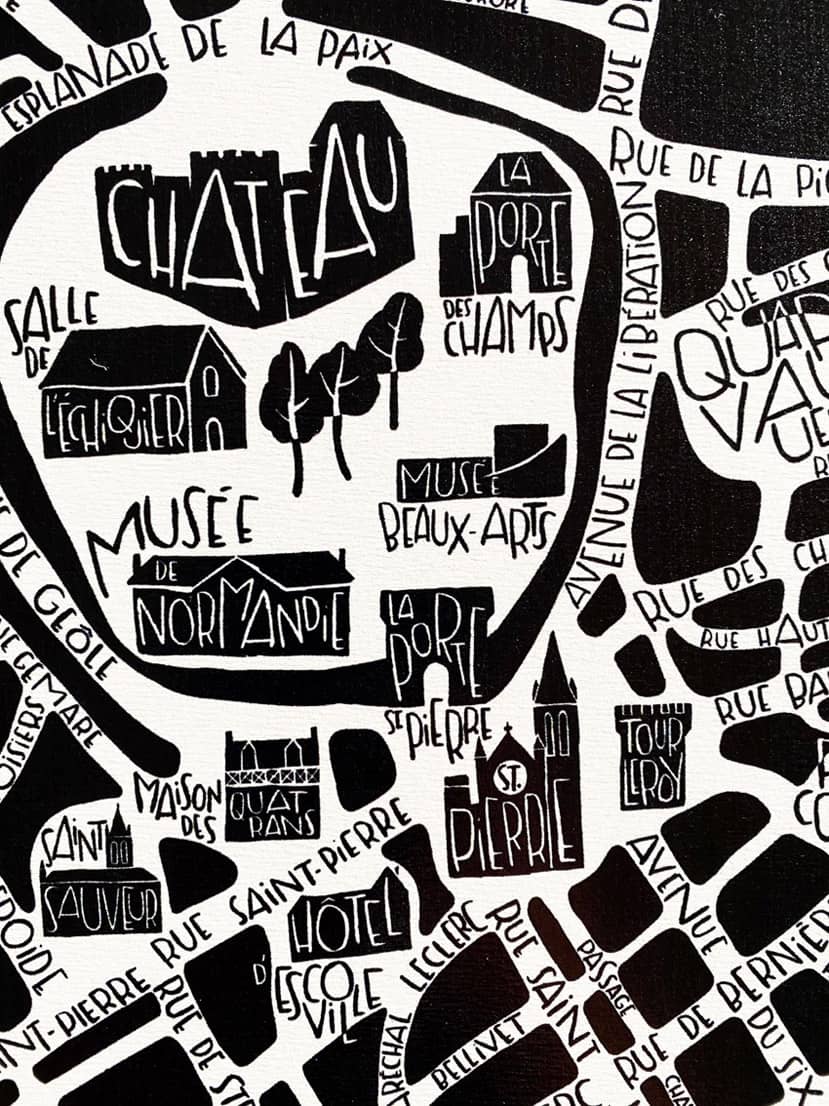 ESPLANADE DE LA PAIX
RUE D
RUE DE LA PI
CHATEAU
LA
PORTE
DES
CHAMPS
AVENUE DE LA LIBÉRATION
RUE DES
QUAR
VAU
SALLE
DE
L'ÉCHIQUIER
MUSÉE
BEAUX-ARTS
MUSÉE
DE
NORMANDIE
LA
PORTE
ST PIERRE
DE GEÔLE
GEMARE
RUE DES CH
RUE HAUT
RUE BA
CO
TOUR
LEROY
ST.
PIERRE
MAISON
DES
QUAT
RANS
SAINT
SAUVEUR
RUE SAINT-PIERRE
HÔTEL
D'
ESCO
VILLE
NT-PIERRE
RUE DE ST
LECLERC
BELLIVET
RUE SAINT
PASSAGE
AVENUE
RUE DE BERNIÈR
DU SIX